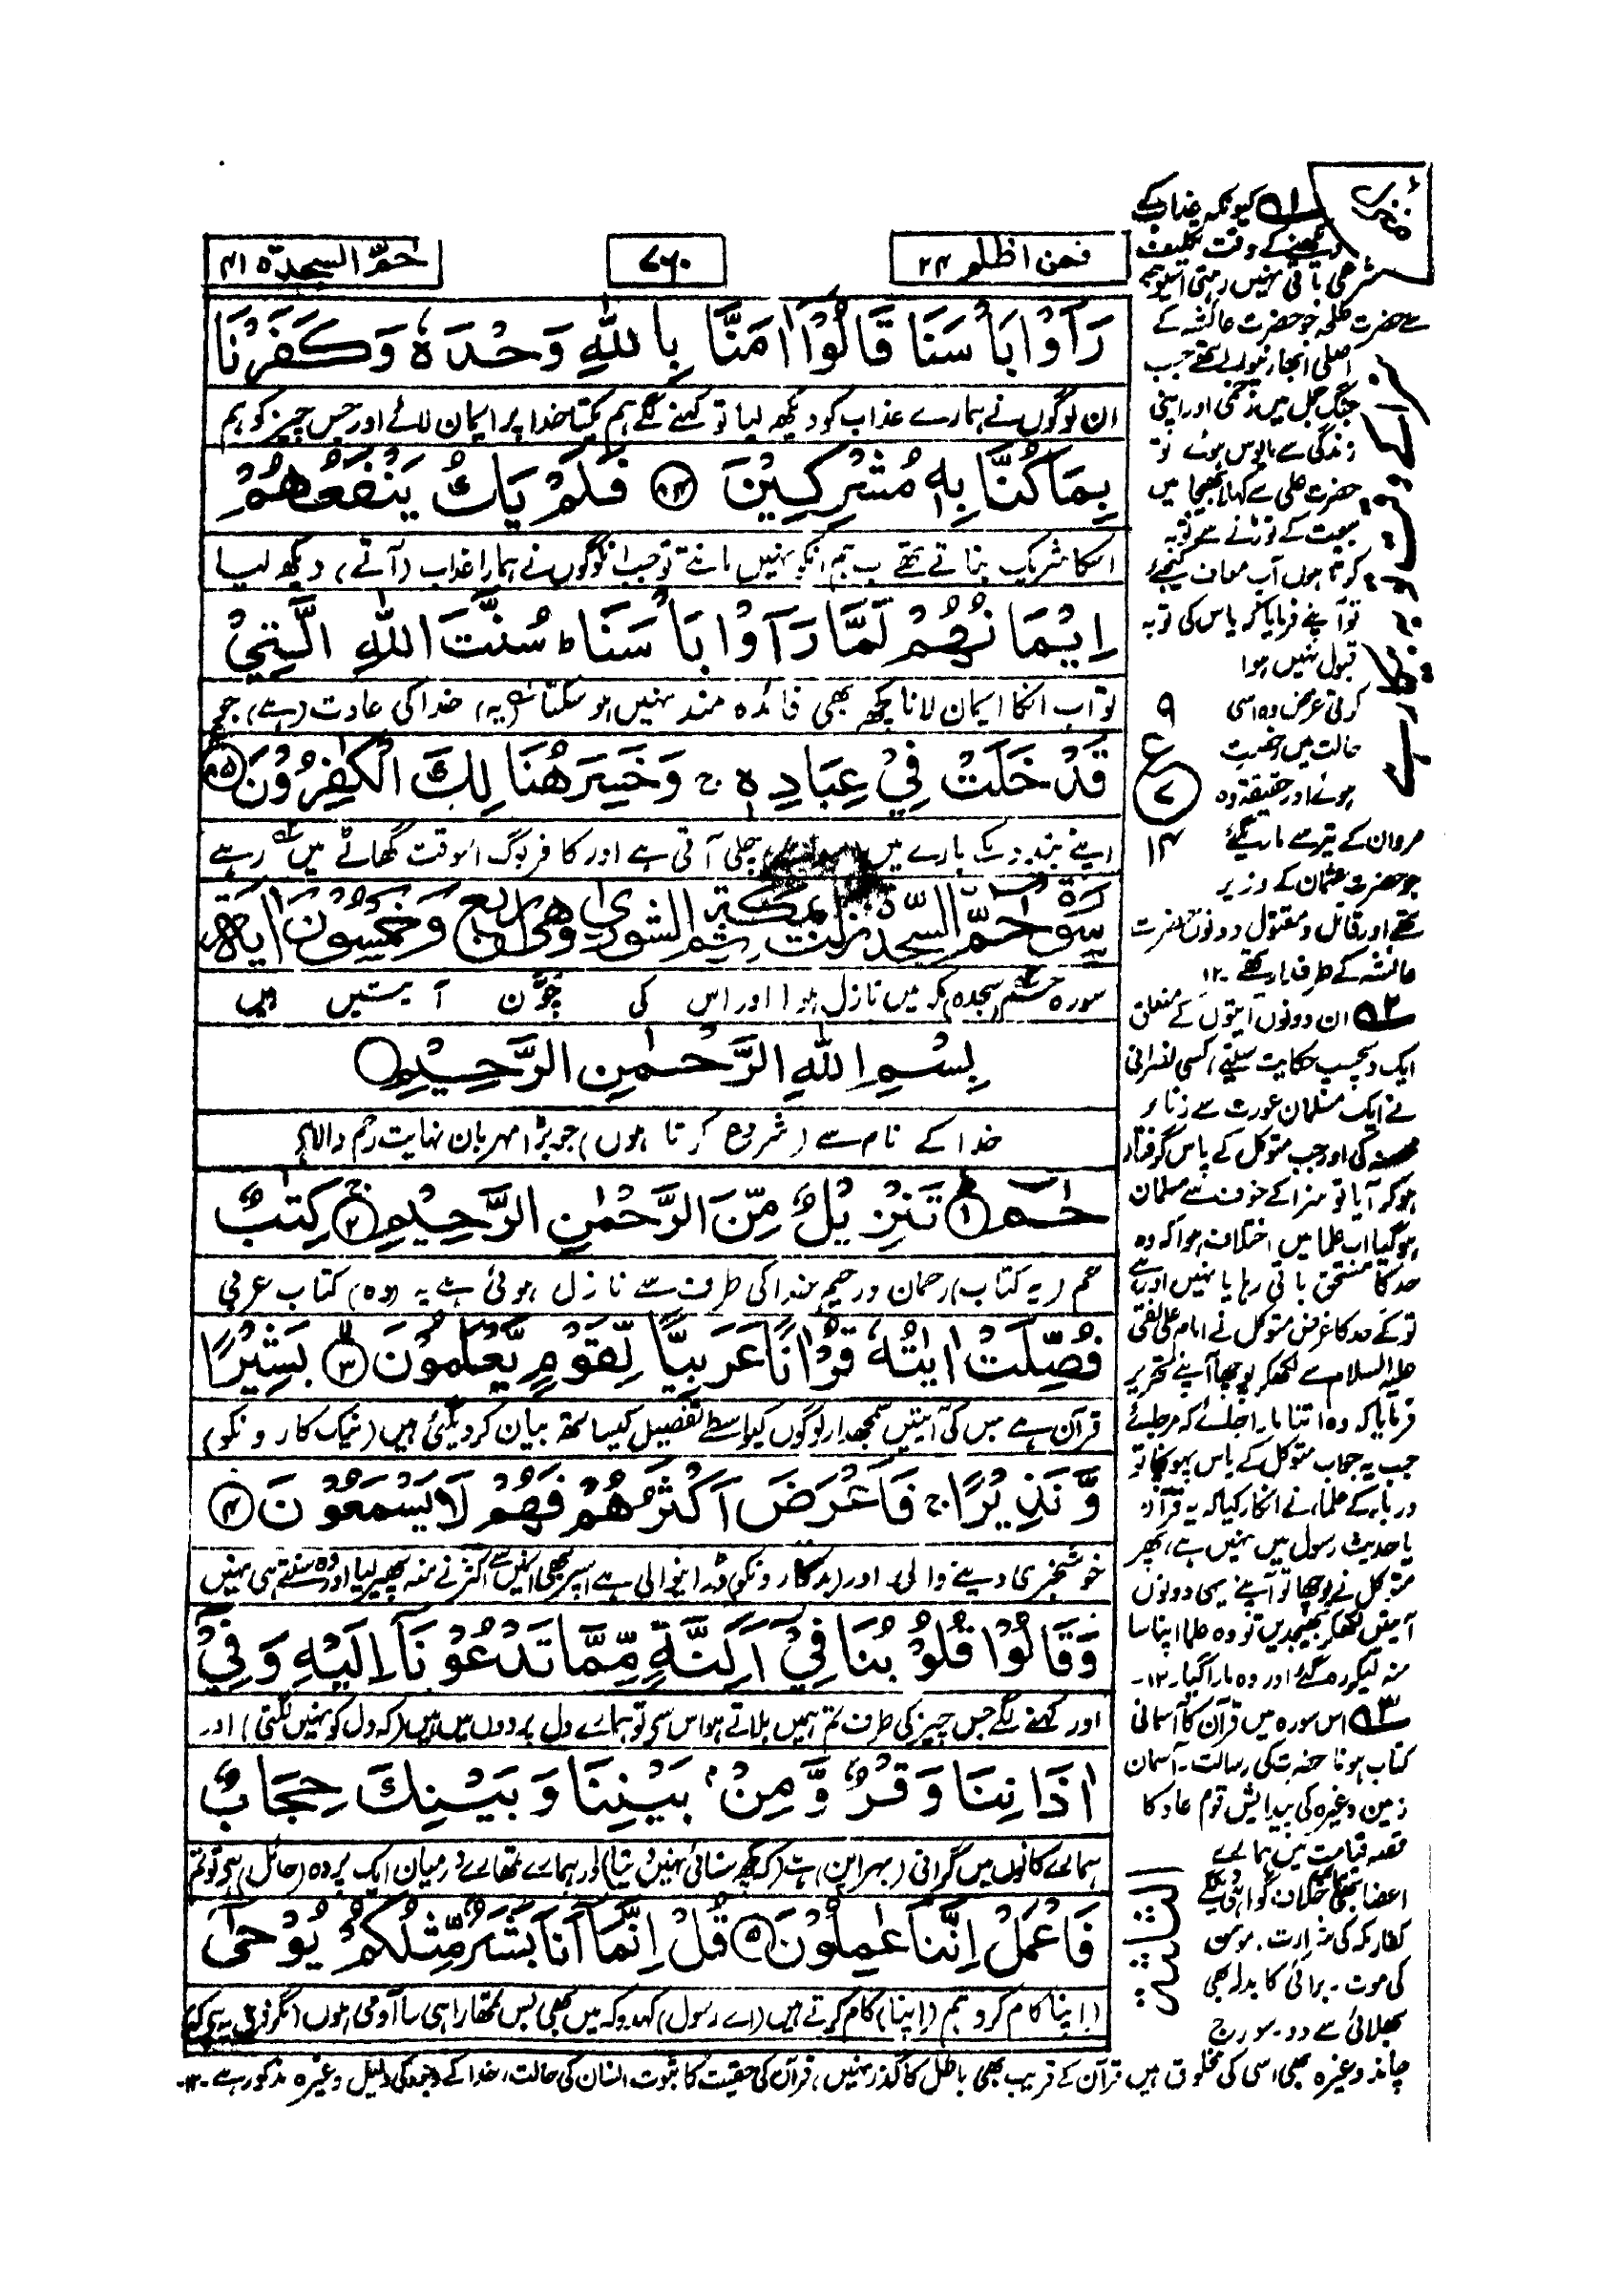 فمن اظلم ۲۴
۷۶۰
حٰمّ السجدة ۴۱
رَاَوْا بَاْسَنَا قَالُوْٓا اٰمَنَّا بِاللّٰهِ وَحْدَهٗ وَكَفَرْنَا
ان لوگوں نے ہمارے عذاب کو دیکھ لیا تو کہنے لگے ہم یکتا خدا پر ایمان لائے اور جس چیز کو ہم
بِمَا كُنَّا بِهٖ مُشْرِكِيْنَ ﴿۸۴﴾ فَلَمْ يَكُ يَنْفَعُهُمْ
اسکا شریک بناتے تھے اب ہم انکو نہیں مانتے تو جب ان لوگوں نے ہمارا عذاب (آتے) دیکھ لیا
اِيْمَانُهُمْ لَمَّا رَاَوْا بَاْسَنَا ط سُنَّتَ اللّٰهِ الَّتِيْ
تو اب انکا ایمان لانا کچھ بھی فائدہ مند نہیں ہو سکتا (یہ) خدا کی عادت (ہے) جو
قَدْ خَلَتْ فِيْ عِبَادِهٖ ج وَخَسِرَ هُنَالِكَ الْكٰفِرُوْنَ ﴿۸۵﴾
اپنے بندوں کے بارے میں چلی آتی ہے اور کافر لوگ اسوقت گھاٹے میں رہے
سورة حٰمّ السجدة نزلت بمكة ثم الشورى وهي اربع وخمسون اية
سورہ حٰم سجدہ مکہ میں نازل ہوا اور اس کی چوّن آیتیں ہیں
بِسْمِ اللّٰهِ الرَّحْمٰنِ الرَّحِيْمِ
خدا کے نام سے (شروع کرتا ہوں) جو بڑا مہربان نہایت رحم والا ہے
حٰمٓ ﴿۱﴾ تَنْزِيْلٌ مِّنَ الرَّحْمٰنِ الرَّحِيْمِ ﴿۲﴾ كِتٰبٌ
حٰم (یہ کتاب) رحمان و رحیم خدا کی طرف سے نازل ہوئی ہے یہ (وہ) کتاب عربی
فُصِّلَتْ اٰيٰتُهٗ قُرْاٰنًا عَرَبِيًّا لِّقَوْمٍ يَّعْلَمُوْنَ ﴿۳﴾ بَشِيْرًا
قرآن ہے جس کی آیتیں سمجھدار لوگوں کیواسطے تفصیل کیساتھ بیان کر دیگئی ہیں (نیک کارونکو)
وَّنَذِيْرًا ج فَاَعْرَضَ اَكْثَرُهُمْ فَهُمْ لَا يَسْمَعُوْنَ ﴿۴﴾
خوشخبری دینے والی اور (بدکارونکو) ڈرانیوالی ہے اسپر بھی انمیں سے اکثر نے منہ پھیر لیا اور وہ سنتے ہی نہیں
وَقَالُوْا قُلُوْبُنَا فِيْٓ اَكِنَّةٍ مِّمَّا تَدْعُوْنَآ اِلَيْهِ وَفِيْٓ
اور کہنے لگے جس چیز کی طرف تم ہمیں بلاتے ہو اس سے تو ہمارے دل پردوں میں ہیں (کہ دل کو نہیں لگتی) اور
اٰذَانِنَا وَقْرٌ وَّمِنْۢ بَيْنِنَا وَبَيْنِكَ حِجَابٌ
ہمارے کانوں میں گرانی (بہراپن) ہے (کہ کچھ سنائی نہیں دیتا) اور ہمارے تمھارے درمیان ایک پردہ (حائل) ہے تو تم
فَاعْمَلْ اِنَّنَا عٰمِلُوْنَ ﴿۵﴾ قُلْ اِنَّمَآ اَنَا بَشَرٌ مِّثْلُكُمْ يُوْحٰٓى
(اپنا) کام کرو ہم (اپنا) کام کرتے ہیں (اے رسول) کہدو کہ میں بھی بس تمھارا ہی سا آدمی ہوں (مگر فرق یہ ہے کہ)
۱ کیونکہ عذاب کے
دیکھنے کے وقت تکلیف
شرعی باقی نہیں رہتی اسیوجہ
سے حضرت طلحہ جو حضرت عائشہ کے
اصلی ابھارنیوالے تھے جب
جنگ جمل میں زخمی اور اپنی
زندگی سے مایوس ہوئے تو
حضرت علی سے کہلا بھیجا میں
بیعت کے توڑنے سے توبہ
کرتا ہوں آپ معاف کیجئے
تو آپ نے فرمایا کہ یاس کی توبہ
قبول نہیں ہوا
کرتی غرض وہ اسی
حالت میں رخصت
ہوئے اور حقیقۃ وہ
مروان کے تیر سے مارے گئے
جو حضرت عثمان کے وزیر
تھے اور قاتل و مقتول دونوں حضرت
عائشہ کے طرفدار تھے ۔۱۲
۹
ع
۷
۱۴
۲ ان دونوں آیتوں کے متعلق
ایک دلچسپ حکایت سنیئے، کسی نصرانی
نے ایک مسلمان عورت سے زنا
کی اور جب متوکل کے پاس گرفتار
ہو کر آیا تو سزا کے خوف سے مسلمان
ہو گیا اب علما میں اختلاف ہوا کہ وہ
حد کا مستحق باقی رہا یا نہیں اور ہے
تو کے حد کا غرض متوکل نے امام علی نقی
علیہ السلام سے لکھکر پوچھا آپ نے تحریر
فرمایا کہ وہ اتنا مارا جائے کہ مر جائے
جب یہ جواب متوکل کے پاس پہونچا تو
دربار کے علماء نے انکار کیا کہ یہ قرآن
یا حدیث رسول میں نہیں ہے، پھر
متوکل نے پوچھا تو آپ نے یہی دونوں
آیتیں لکھکر بھیجدیں تو وہ علما اپنا سا
منہ لیکر رہ گئے اور وہ مارا گیا ۔۱۲
۳ اس سورہ میں قرآن کا آسمانی
کتاب ہونا حضرت کی رسالت ۔ آسمان
زمین وغیرہ کی پیدایش قوم عاد کا
قصہ قیامت میں ہمارے
اعضا بھی خلاف گواہی دینگے
کفار مکہ کی شرارت ۔ مومن
کی موت ۔ برائی کا بدلہ بھی
بھلائی سے دو ۔ سورج
چاند وغیرہ بھی اسی کی مخلوق ہیں قرآن کے قریب بھی باطل کا گذر نہیں، قرآن کی حقیت کا ثبوت، انسان کی حالت، خدا کے وجود کی دلیل وغیرہ مذکور ہے ۔۱۲